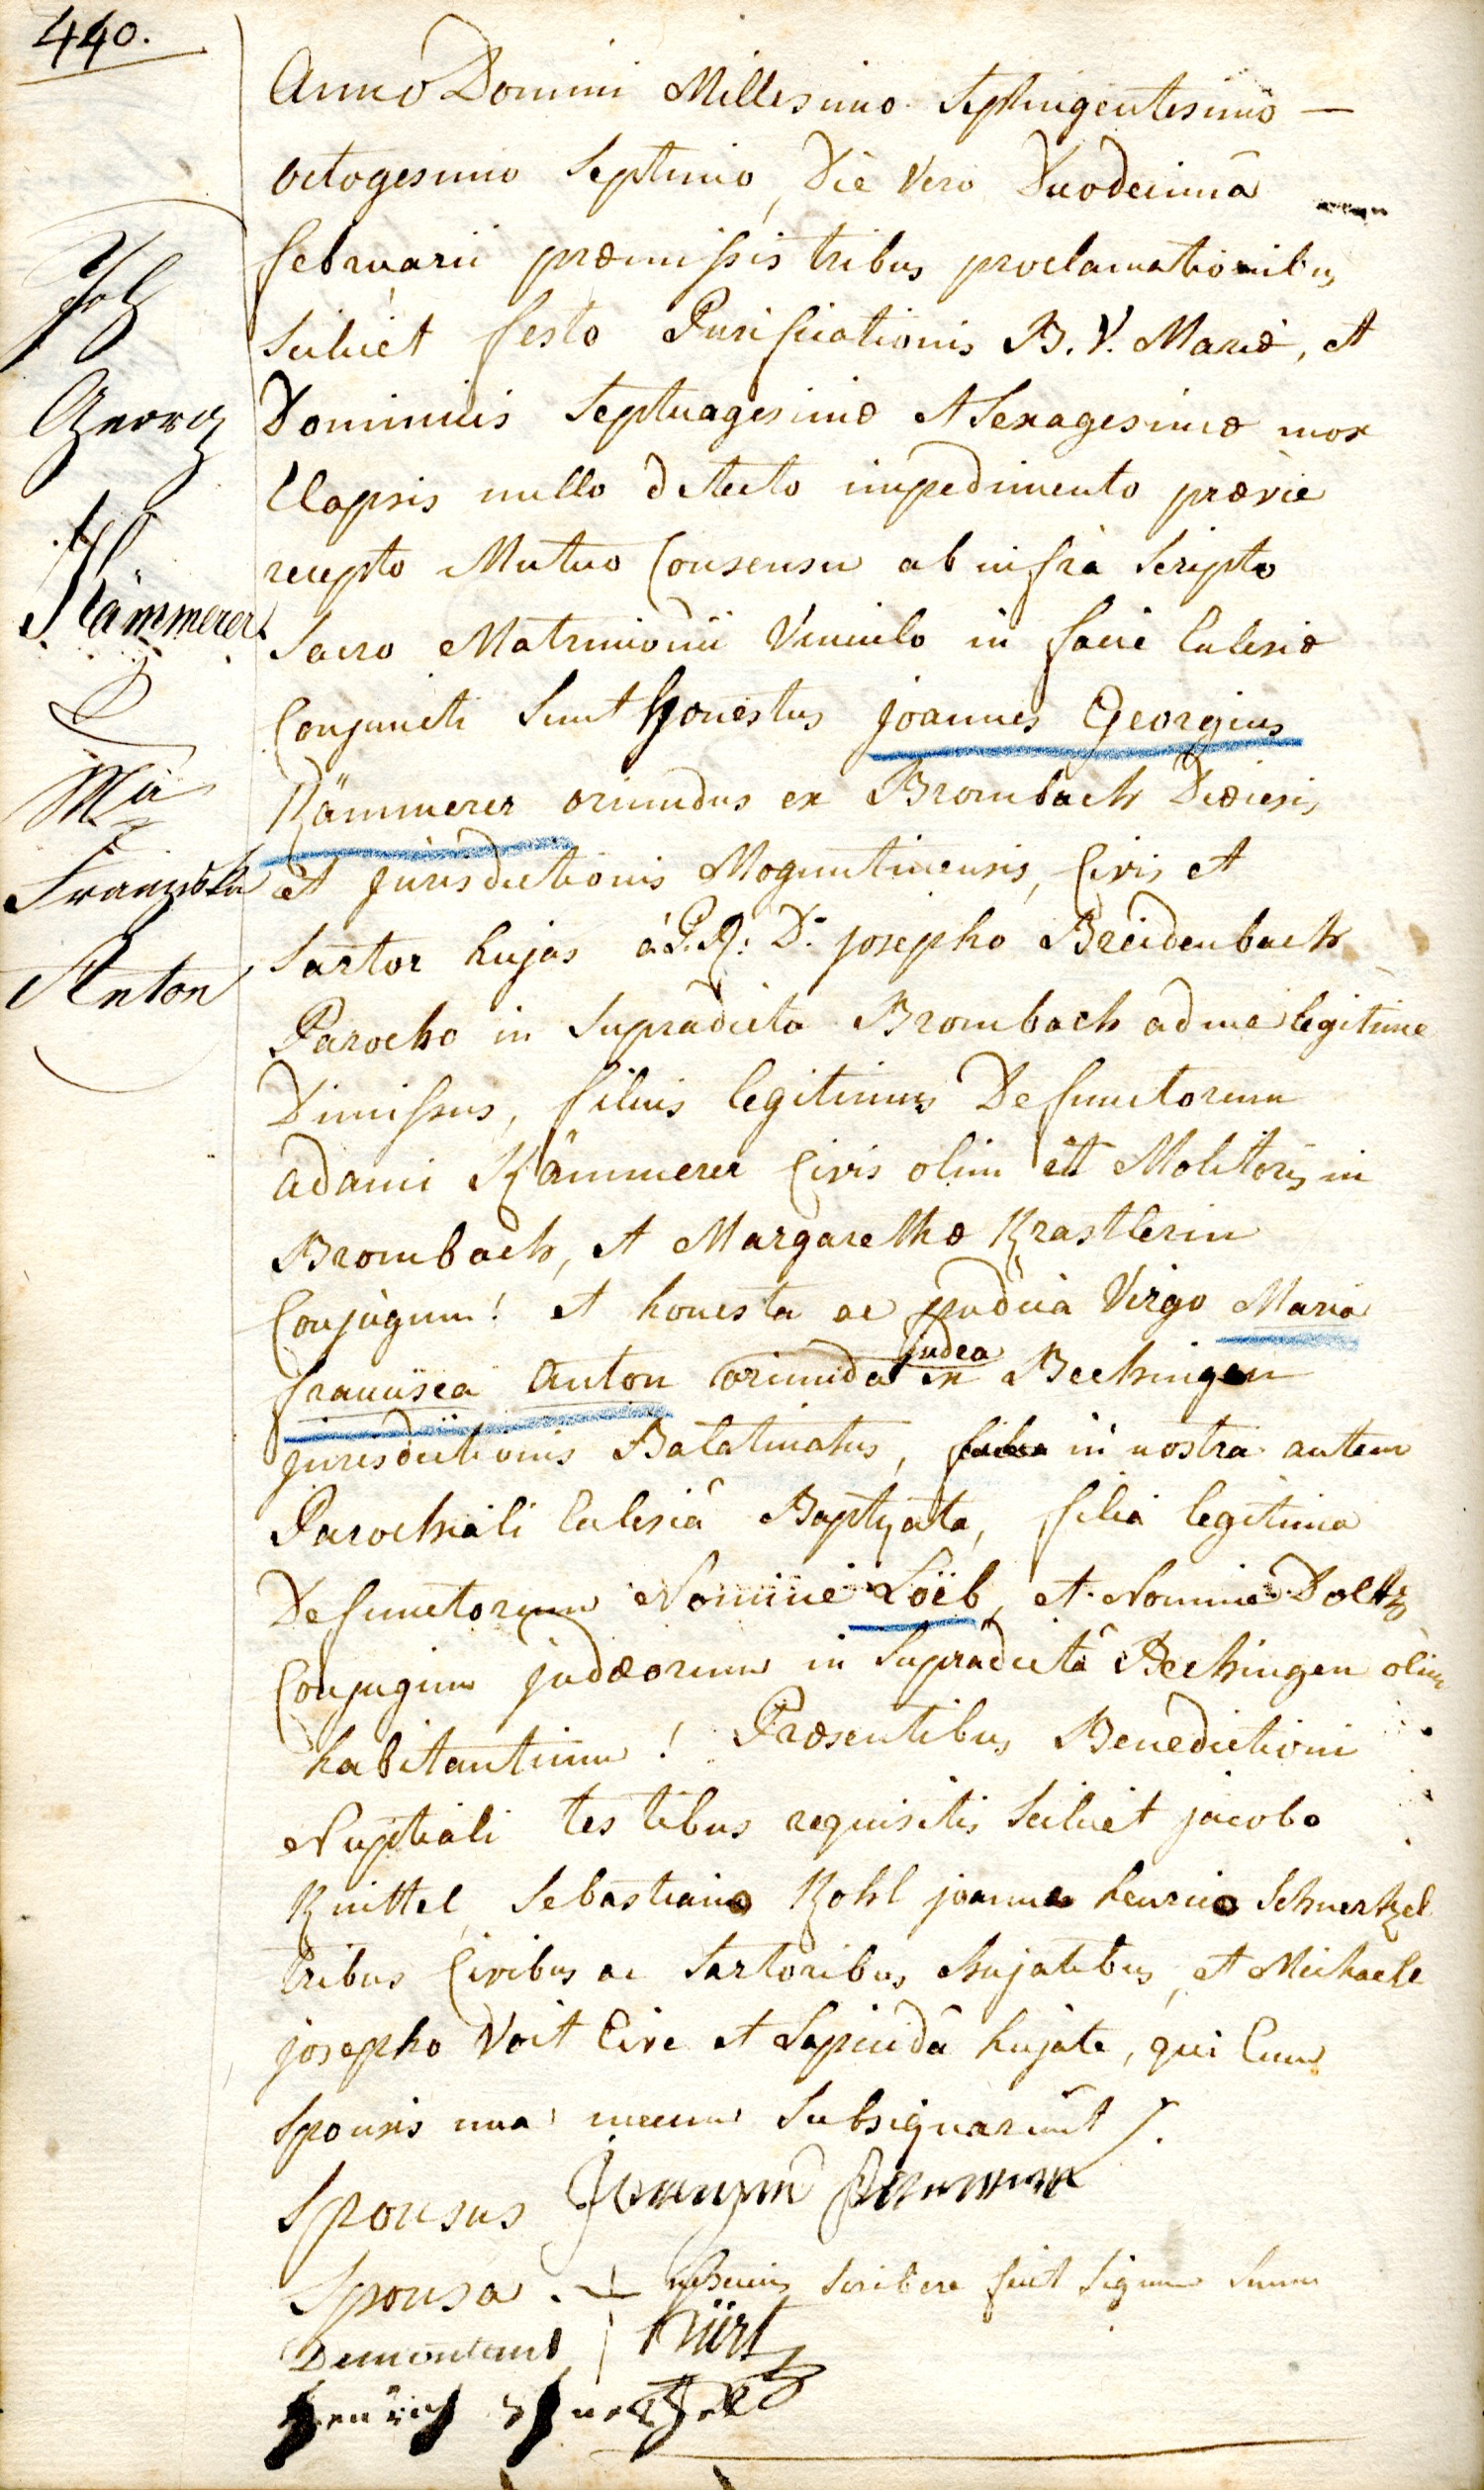 440.
Joh
Georg
Kämmerer
Mª
Franziska
Anton
Anno Domini Millesimo Septingentesimo —
octogesimo Septimo, Die Vero Duodecimâ
februarii præmissis tribus proclamationibus
Scilicet festo Purificationis B. V. Mariæ, et
Dominicis Septuagesimæ et Sexagesimæ mox
Elapsis nullo detecto impedimento prævie
recepto Mutuo Consensu ab infrà Scripto
Sacro Matrimonii Vinculo in facie Eclesiæ
Conjuncti Sunt Honestus joannes Georgius
Kämmerer oriundus ex Brombach Diæcesis
et jurisdictionis Moguntinensis, Civis et
Sartor hujas à P. R. D. josepho Breidenbach
Parocho in Supradicta Brombach ad me legitime
Dimissus, filius legitimus Defunctorum
adami Kämmerer Civis olim et Molitoris in
Brombach, et Margarethæ Krastlerin
Conjugum! et honesta ac pudica Virgo Maria
francisca Anton oriunda judea ex Bechingen
jurisdictionis Palatinatus, in nostra autem
Parochiali Eclesiâ Baptizata, filia legitima
Defunctorum Nomine Löeb, et Nomine
Conjugum judæorum in Supradictâ Bechingen olim
habitantium! Præsentibus Benedictioni
Nuptiali testibus requisitis Scilicet jacobo
Knittel, Sebastiano Kohl joanne henrico Schnertzel
tribus Civibus ac Sartoribus hujatibus, et Michaele
josepho Voit Cive et Lapicidâ hujate, qui Cum
Sponsis una mecum Subsignarunt /.
Sponsus
Sponsa + nescius Scribere fecit Signum Suum
henrich